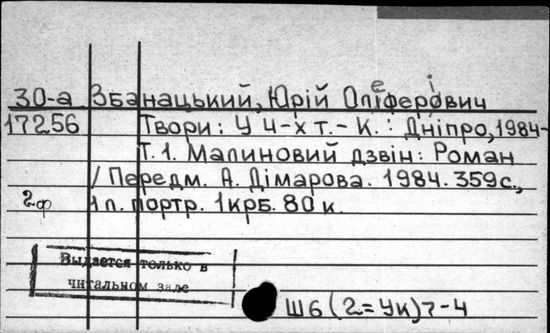 30-а Збанацький, Юрій Оліферович
17256 Твори: У 4-х т. - К. : Дніпро, 1984-
Т. 1. Малиновий дзвін: Роман
/ Передм. А. Дімарова. 1984. 359 с.,
2ф 1 л. портр. 1 крб. 80 к.
Выдается только в
читальном зале
Ш6(2=Ук)7-4